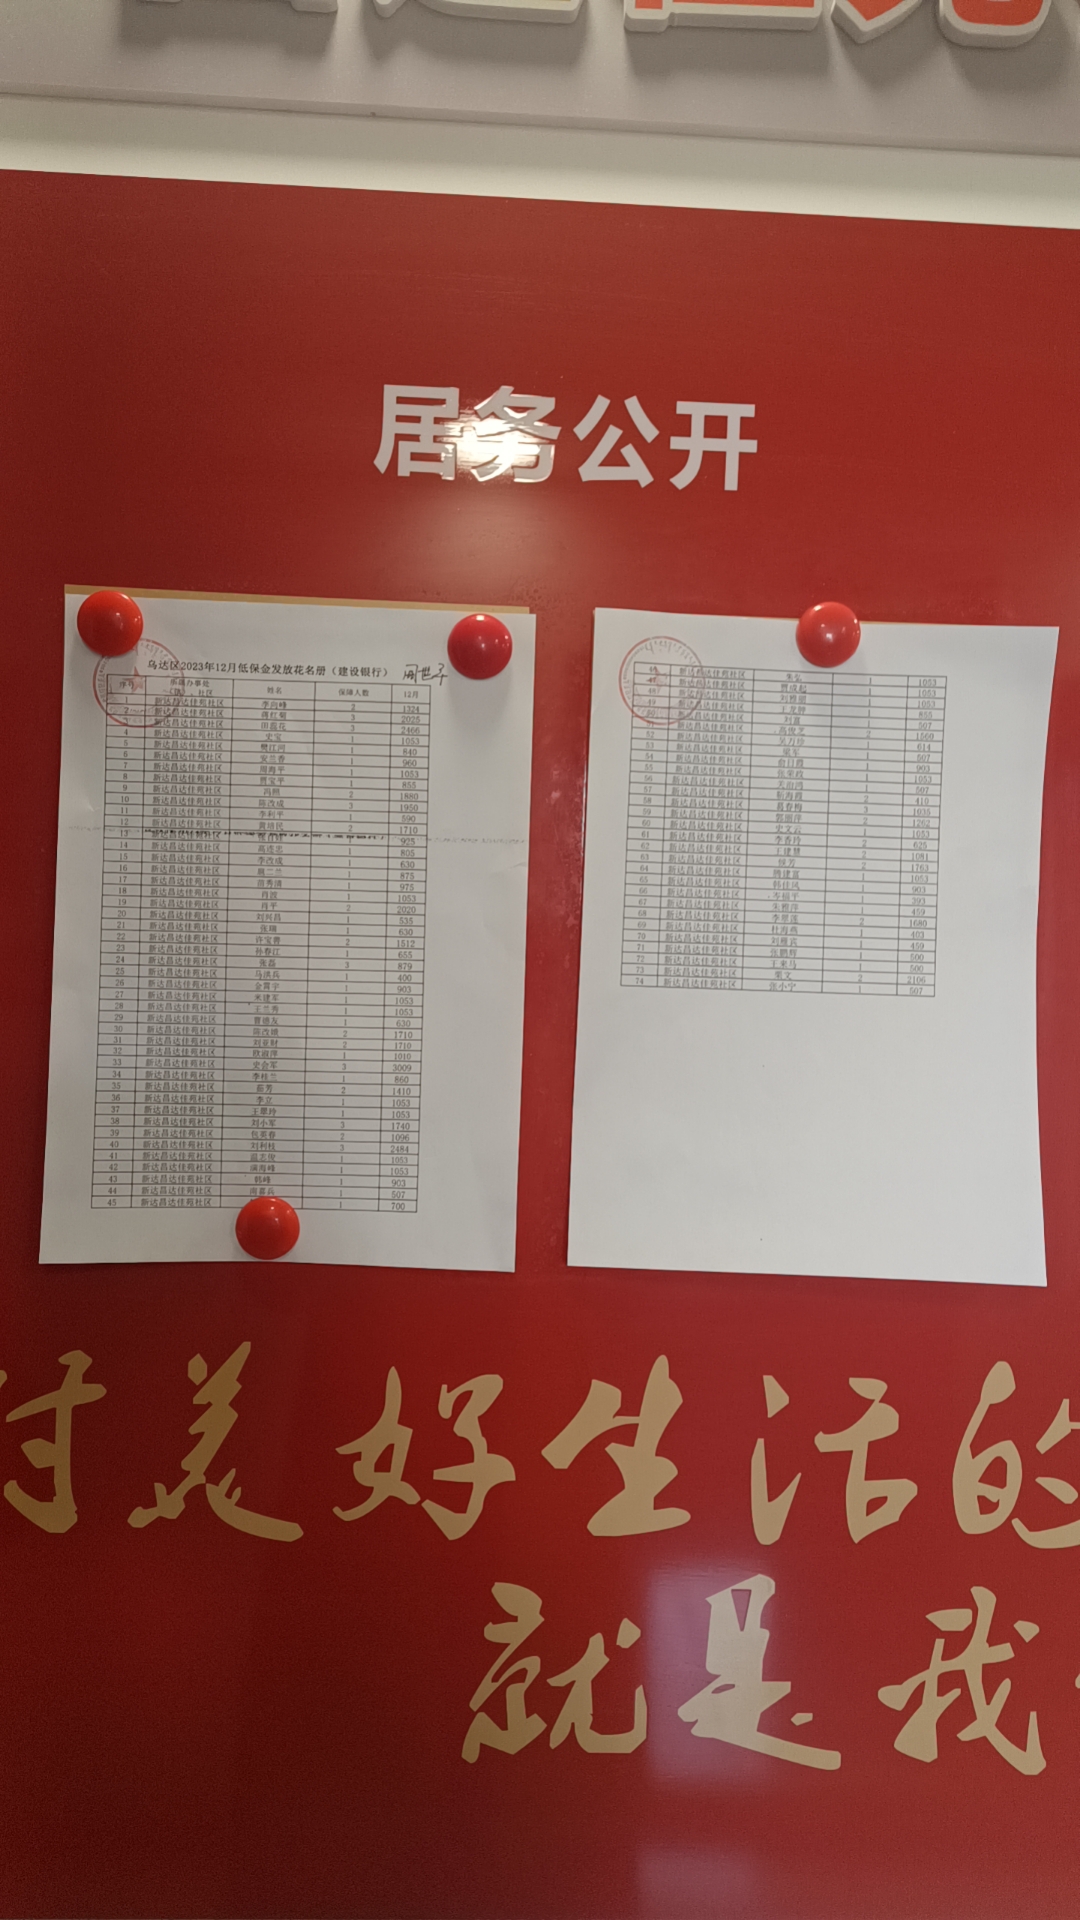 居务公开
乌达区2023年12月低保金发放花名册（建设银行）
序号 所属办事处（镇）、社区 姓名 保障人数 12月
1 新达昌达佳苑社区 李向峰 2 1324
2 新达昌达佳苑社区 蒋红菊 3 2025
3 新达昌达佳苑社区 田蕊花 3 2466
4 新达昌达佳苑社区 史宝 1 1053
5 新达昌达佳苑社区 樊江河 1 840
6 新达昌达佳苑社区 安兰香 1 960
7 新达昌达佳苑社区 周海平 1 1053
8 新达昌达佳苑社区 贾宝平 1 855
9 新达昌达佳苑社区 冯熙 2 1880
10 新达昌达佳苑社区 陈改成 3 1950
11 新达昌达佳苑社区 李利平 1 590
12 新达昌达佳苑社区 黄培民 2 1710
13 新达昌达佳苑社区 925
14 新达昌达佳苑社区 高连忠 1 805
15 新达昌达佳苑社区 李改成 1 630
16 新达昌达佳苑社区 1 875
17 新达昌达佳苑社区 苗秀清 1 975
18 新达昌达佳苑社区 肖波 1 1053
19 新达昌达佳苑社区 肖平 2 2020
20 新达昌达佳苑社区 刘兴昌 1 535
21 新达昌达佳苑社区 张瑞 1 630
22 新达昌达佳苑社区 许宝善 2 1512
23 新达昌达佳苑社区 孙春江 1 655
24 新达昌达佳苑社区 张磊 3 879
25 新达昌达佳苑社区 马洪兵 1 400
26 新达昌达佳苑社区 金霄宇 1 903
27 新达昌达佳苑社区 米建军 1 1053
28 新达昌达佳苑社区 王兰秀 1 1053
29 新达昌达佳苑社区 曹德友 1 630
30 新达昌达佳苑社区 陈改娥 2 1710
31 新达昌达佳苑社区 刘亚财 2 1710
32 新达昌达佳苑社区 欧淑萍 1 1010
33 新达昌达佳苑社区 史会军 3 3009
34 新达昌达佳苑社区 李桂兰 1 860
35 新达昌达佳苑社区 茹芳 2 1410
36 新达昌达佳苑社区 李立 1 1053
37 新达昌达佳苑社区 王翠玲 1 1053
38 新达昌达佳苑社区 刘小军 3 1740
39 新达昌达佳苑社区 包英春 2 1096
40 新达昌达佳苑社区 刘利枝 3 2484
41 新达昌达佳苑社区 温志俊 1 1053
42 新达昌达佳苑社区 满海峰 1 1053
43 新达昌达佳苑社区 韩峰 1 903
44 新达昌达佳苑社区 南喜兵 1 507
45 新达昌达佳苑社区 1 700
46 新达昌达佳苑社区 朱弘 1 1053
47 新达昌达佳苑社区 贾成起 1 1053
48 新达昌达佳苑社区 刘雅娟 1 1053
49 新达昌达佳苑社区 王龙和 1 855
50 新达昌达佳苑社区 刘喜 1 507
51 新达昌达佳苑社区 高俊芝 2 1560
52 新达昌达佳苑社区 吴万珍 1 614
53 新达昌达佳苑社区 梁军 1 507
54 新达昌达佳苑社区 俞自霞 1 903
55 新达昌达佳苑社区 张荣政 1 1053
56 新达昌达佳苑社区 关治鸿 1 507
57 新达昌达佳苑社区 靳海霞 2 410
58 新达昌达佳苑社区 葛春梅 3 1035
59 新达昌达佳苑社区 郭丽萍 2 1262
60 新达昌达佳苑社区 史文云 1 1053
61 新达昌达佳苑社区 李香玲 2 625
62 新达昌达佳苑社区 王建慧 2 1081
63 新达昌达佳苑社区 侯芳 2 1763
64 新达昌达佳苑社区 腾建富 1 1053
65 新达昌达佳苑社区 韩佳凤 1 903
66 新达昌达佳苑社区 1 393
67 新达昌达佳苑社区 朱雅萍 1 459
68 新达昌达佳苑社区 李翠莲 2 1680
69 新达昌达佳苑社区 杜海燕 1 403
70 新达昌达佳苑社区 刘雁宾 1 459
71 新达昌达佳苑社区 张鹏辉 1 500
72 新达昌达佳苑社区 王来马 1 500
73 新达昌达佳苑社区 栗文 2 2106
74 新达昌达佳苑社区 张小宁 1 507
对美好生活的
就是我